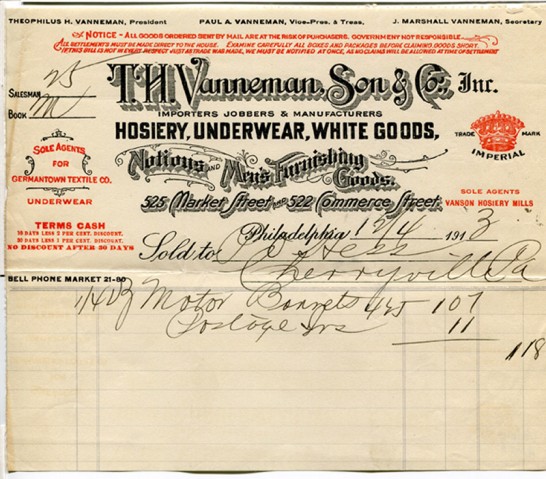 THEOPHILUS H. VANNEMAN, President PAUL A. VANNEMAN, Vice-Pres. & Treas. J. MARSHALL VANNEMAN, Secretary
NOTICE - ALL GOODS ORDERED SENT BY MAIL ARE AT THE RISK OF PURCHASERS. GOVERNMENT NOT RESPONSIBLE.
ALL SETTLEMENTS MUST BE MADE DIRECT TO THE HOUSE. EXAMINE CAREFULLY ALL BOXES AND PACKAGES BEFORE CLAIMING GOODS SHORT.
IF THIS BILL IS NOT IN EVERY RESPECT JUST AS TRADE WAS MADE, WE MUST BE NOTIFIED AT ONCE, AS NO CLAIMS WILL BE ALLOWED AT TIME OF SETTLEMENT
SALESMAN 25
BOOK M
T.H. Vanneman, Son & Co., Inc.
IMPORTERS JOBBERS & MANUFACTURERS
HOSIERY, UNDERWEAR, WHITE GOODS,
Notions AND Men's Furnishing
Goods.
525 Market Street AND 522 Commerce Street.
SOLE AGENTS
FOR
GERMANTOWN TEXTILE CO.
UNDERWEAR
TRADE MARK
IMPERIAL
SOLE AGENTS
VANSON HOSIERY MILLS
TERMS CASH
10 DAYS LESS 2 PER CENT. DISCOUNT.
30 DAYS LESS 1 PER CENT. DISCOUNT.
NO DISCOUNT AFTER 30 DAYS
Philadelphia 12/4 1913
Sold to Hess
Cherryville Pa
BELL PHONE MARKET 21-80
1/4 Dz Motor Bonnets 425 107
Postage & Ins 11
118